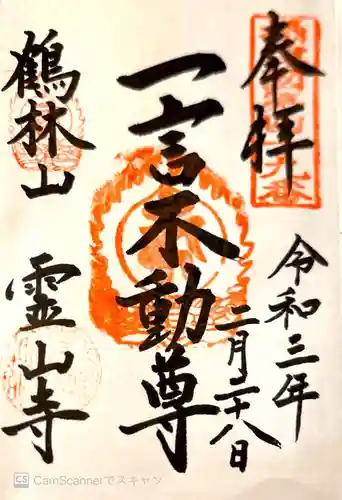 奉拝
令和三年
二月二十八日
一言不動尊
鶴林山
霊山寺
CS CamScannerでスキャン